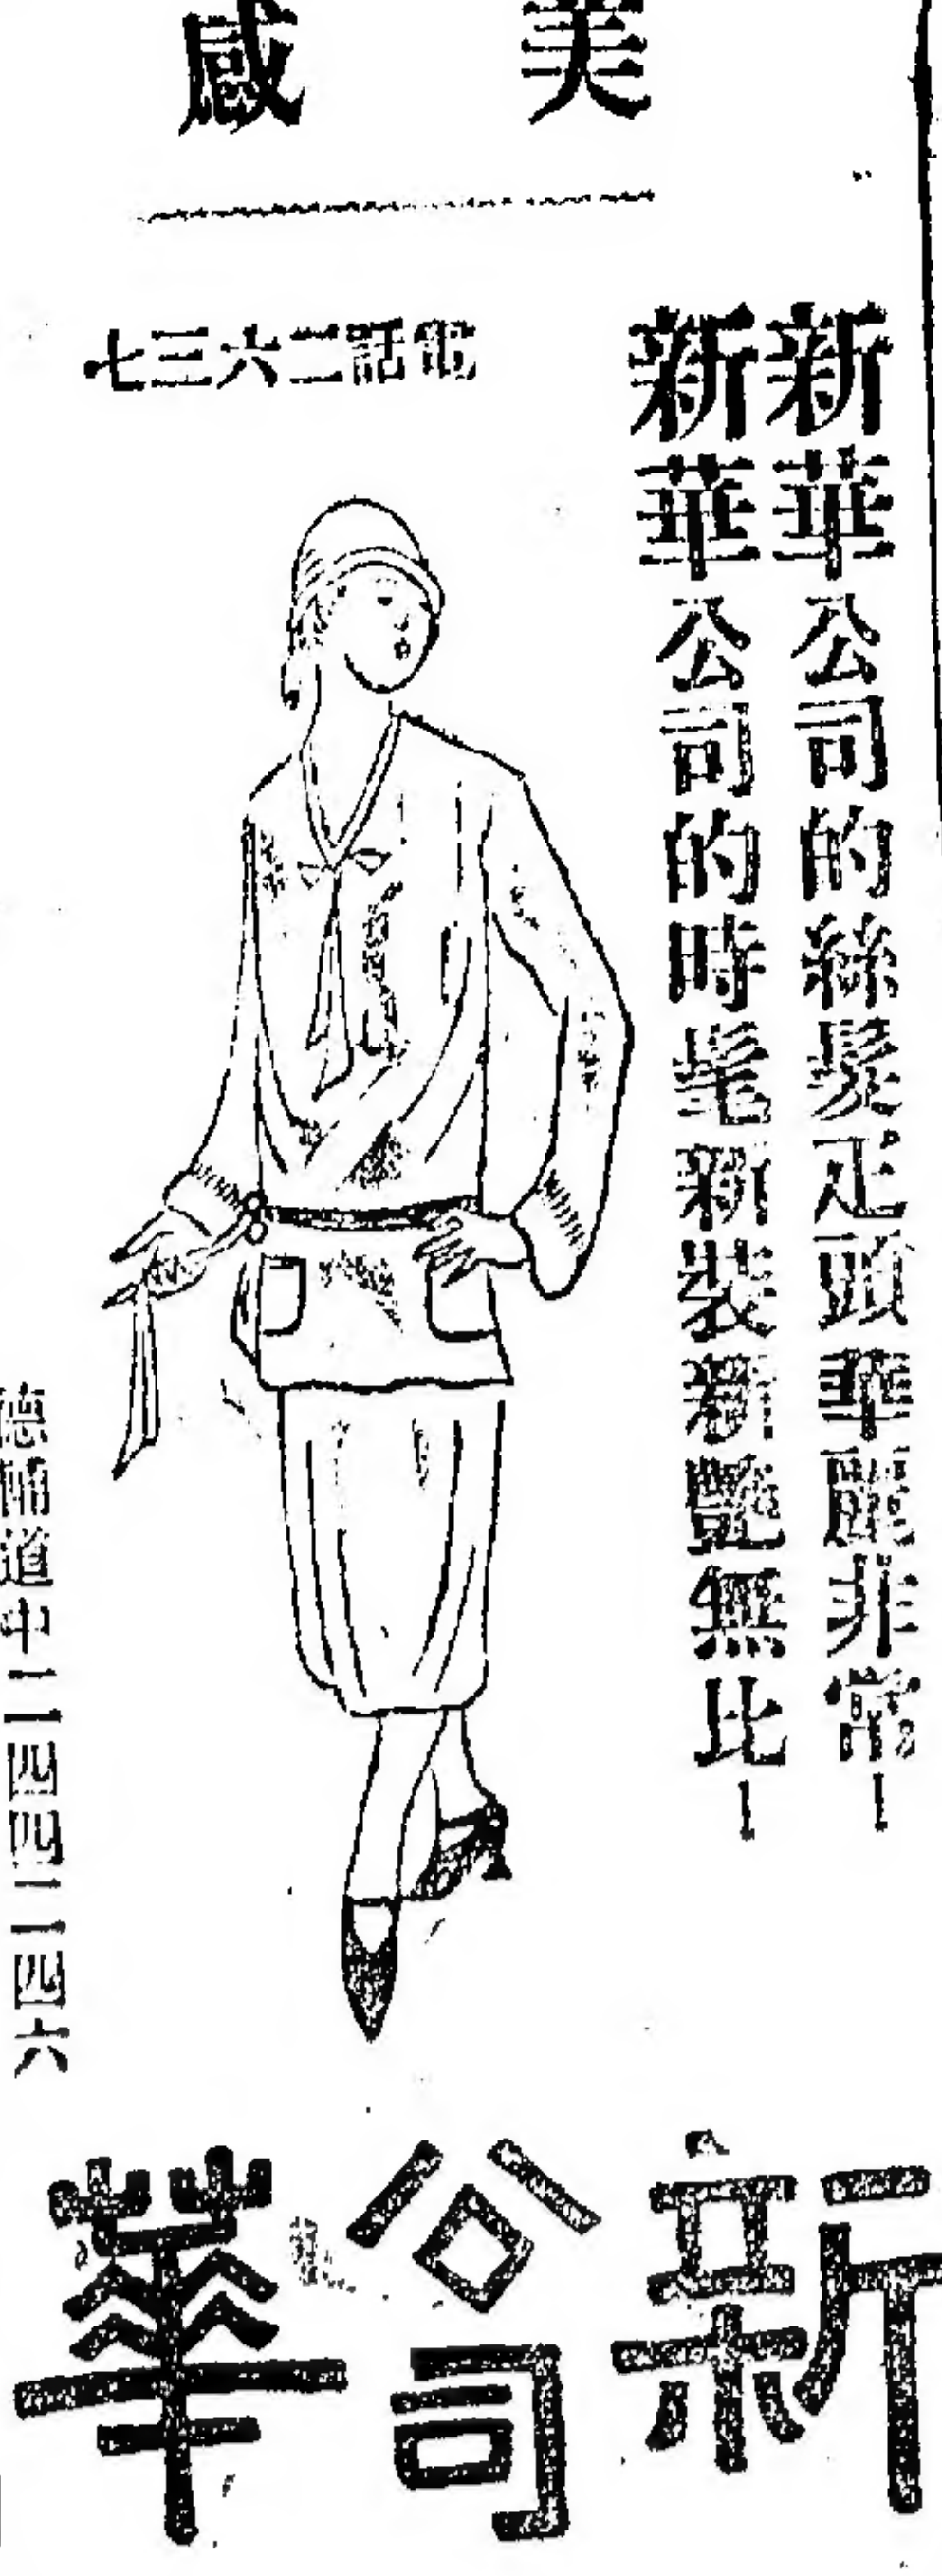 美感
新華公司的絲髮疋頭華麗非常!
新華公司的時髦新裝新艷無比!
電話二六三七
德輔道中一二四四二一四六
新華公司